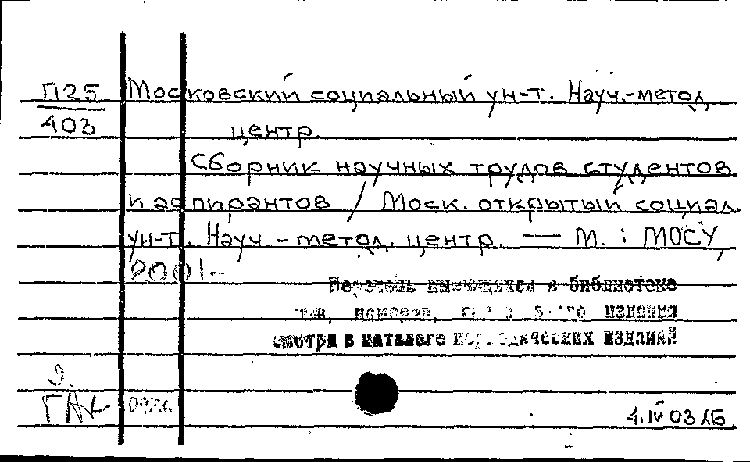 П25 Московский социальный ун-т. Науч.-метод.
403 центр.
Сборник научных трудов студентов
и аспирантов / Моск. открытый социал.
ун-т. Науч.-метод. центр. — М. : МОСУ,
2001-
Перечень имеющихся в библиотеке
смотри в каталоге периодических изданий
4.IV 03